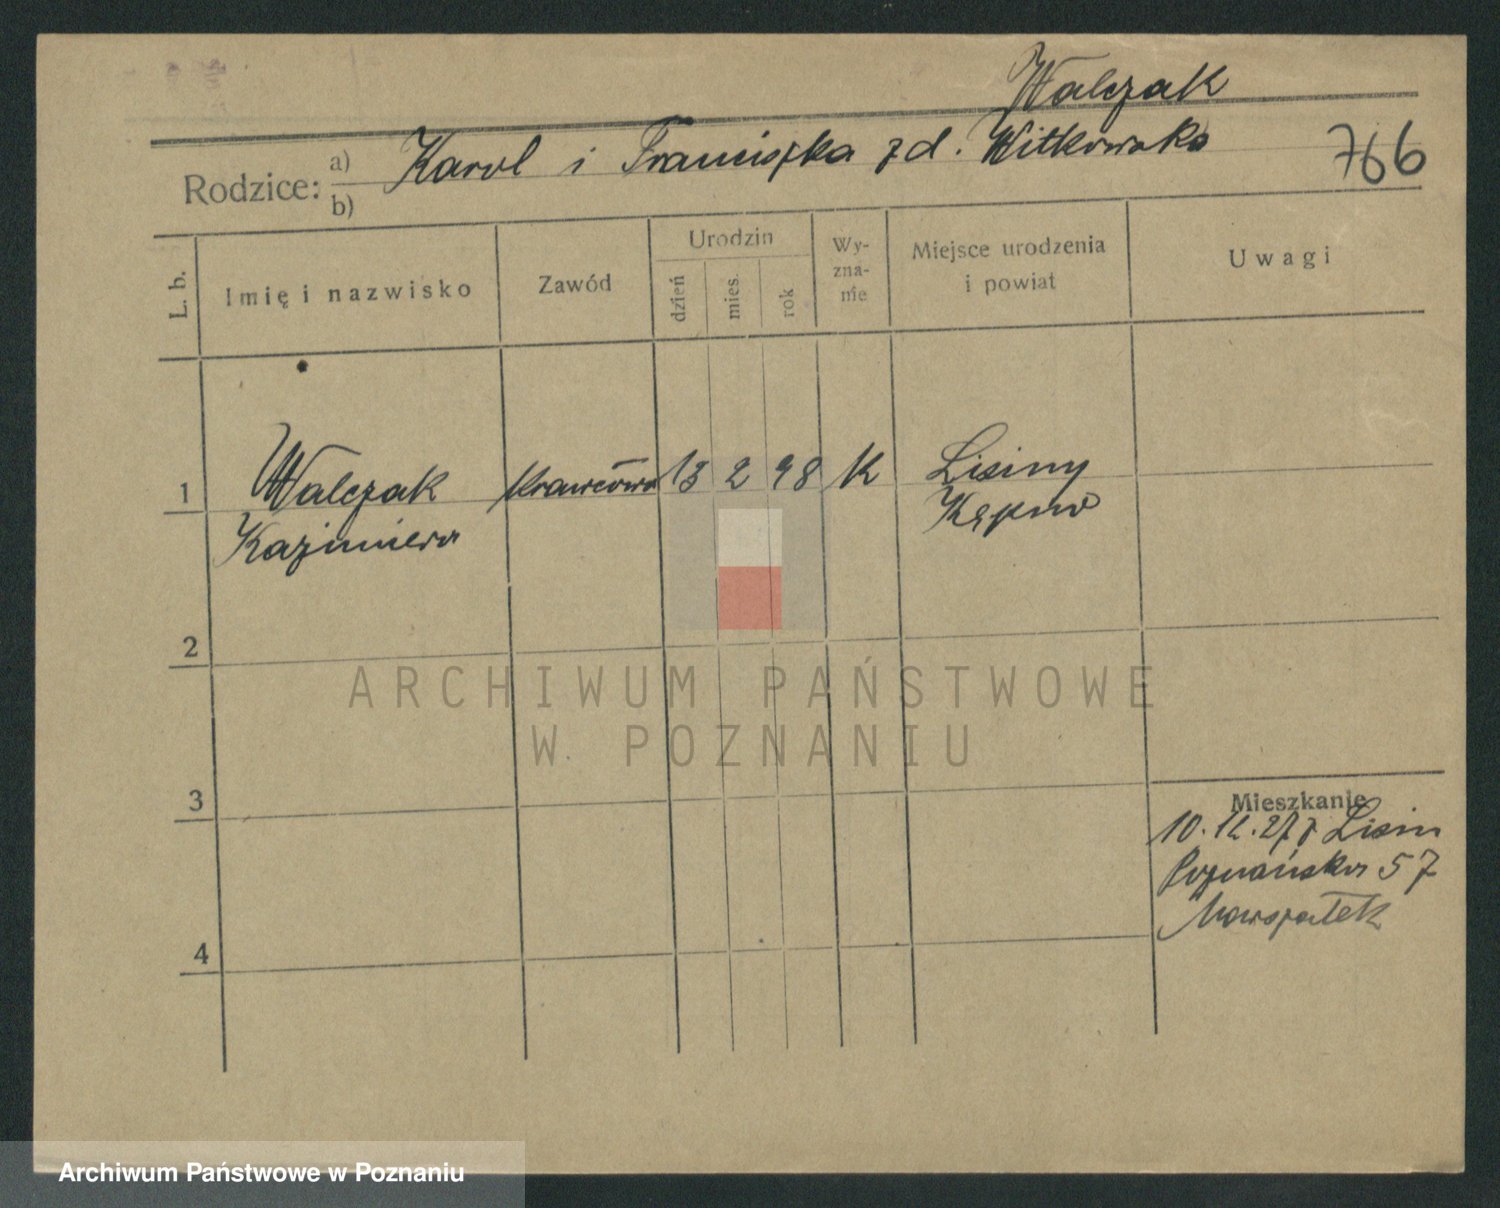 Walczak
Rodzice: a) Karol i Franciszka zd. Witkowska
b)
766
L. b.
Imię i nazwisko
Zawód
Urodzin
dzień
mies.
rok
Wy-
zna-
nie
Miejsce urodzenia
i powiat
Uwagi
1 Walczak Krawcowa 13 2 98 K Lisiny
Kazimiera Kępno
2
ARCHIWUM PAŃSTWOWE
W POZNANIU
3
Mieszkanie
Poznańska 57
4
Archiwum Państwowe w Poznaniu